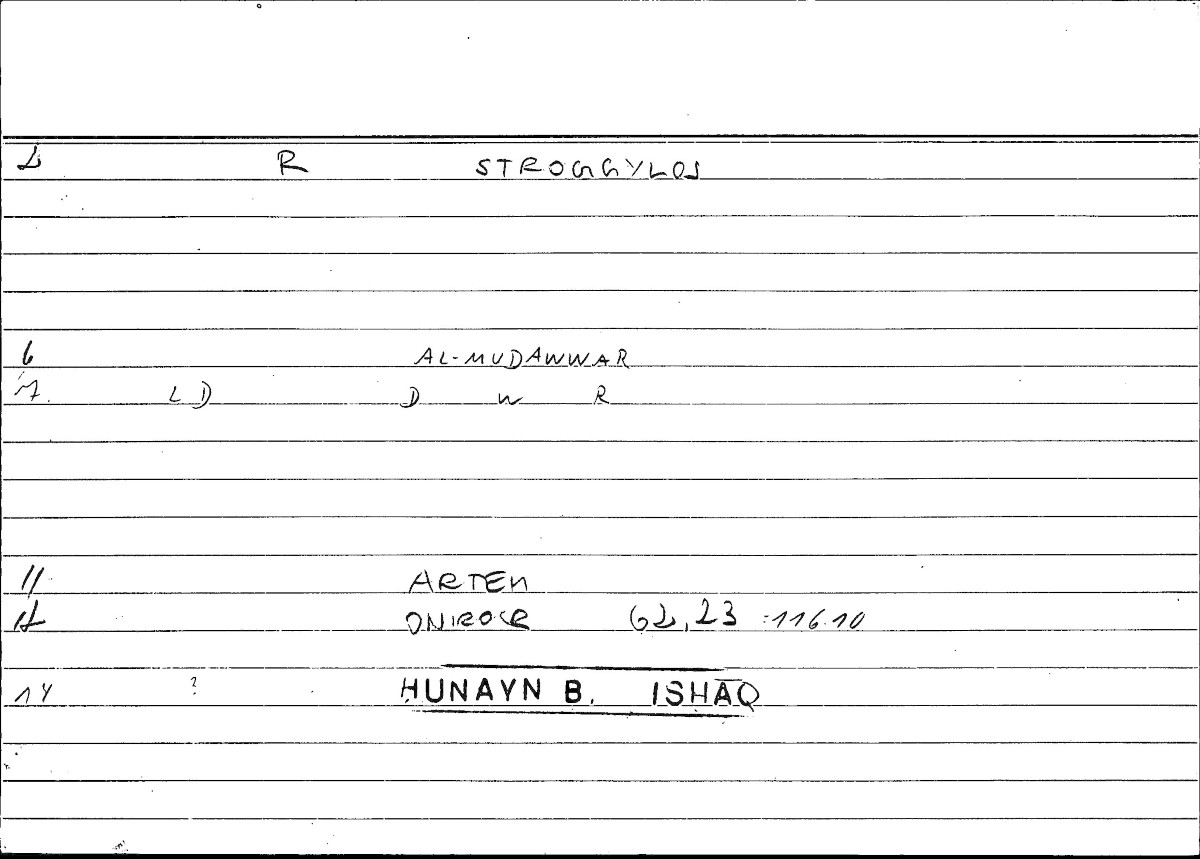 2 R STROGGYLOS
6 AL-MUDAWWAR
7. LD D W R
11 ARTEM
12 ONIROCR 62,23 :116.10
14 ? HUNAYN B. ISHAQ